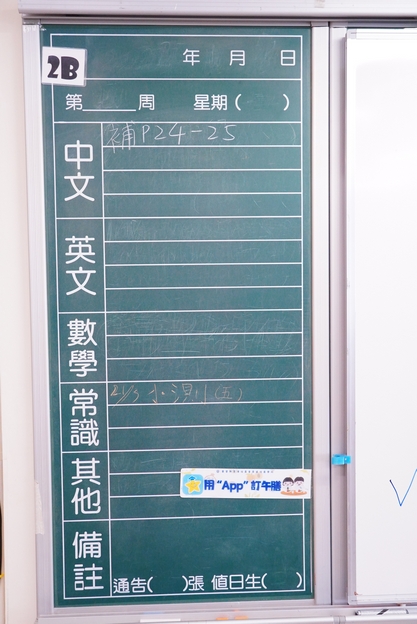 2B
年 月 日
第____周 星期( )
中文
補P24-25
英文
數學
常識
21/3 小測1(五)
其他
用“App”訂午膳
備註
通告( )張 值日生( )